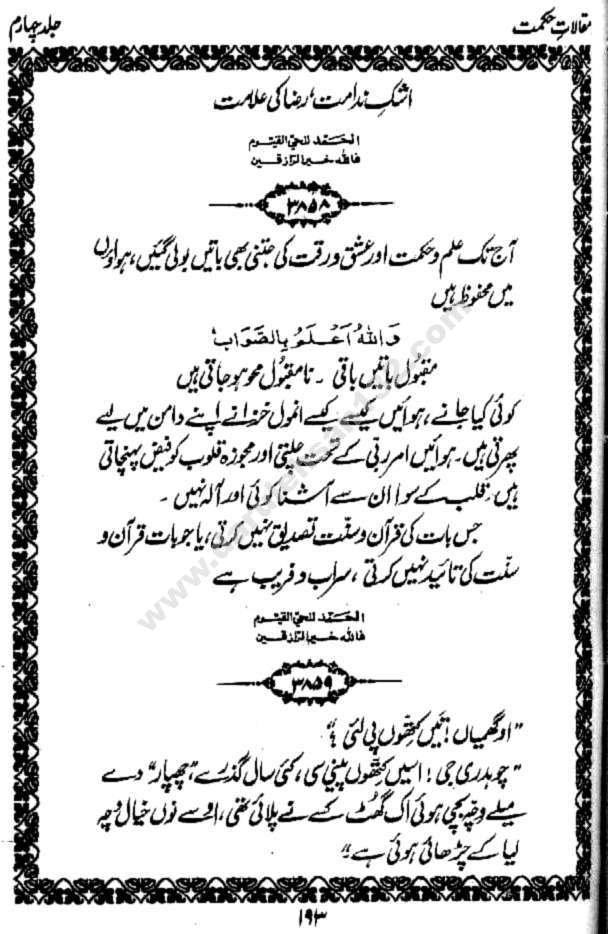 مقالاتِ حکمت
جلد چہارم
اشکِ ندامت، رضا کی علامت
الحمد للحی القیوم
فاللہ خیر الرازقین
۳۸۵۸
آج تک علم و حکمت اور عشق و رقت کی جتنی بھی باتیں بولی گئیں، ہواؤں
میں محفوظ ہیں
وَاللهُ اَعْلَمُ بِالصَّوَابِ
مقبُول باتیں باقی ۔ نامقبُول محو ہو جاتی ہیں
کوئی کیا جانے، ہوائیں کیسے کیسے انمول خزانے اپنے دامن میں لیے
پھرتی ہیں۔ ہوائیں امرِ ربّی کے تحت چلتی اور مجوزہ قلوب کو فیض پہنچاتی
ہیں۔ قلب کے سوا ان سے آشنا کوئی اور آلہ نہیں ۔
جس بات کی قرآن و سنّت تصدیق نہیں کرتی، یا جو بات قرآن و
سنّت کی تائید نہیں کرتی ، سراب و فریب ہے
الحمد للحی القیوم
فاللہ خیر الرازقین
۳۸۵۹
"اوگھیاں! تیں کتھّوں پی لئی ؟"
"چوہدری جی! اسیں کتھّوں پینی سی، کئی سال گذرے، "چھپار" دے
میلے وچہ بچی ہوئی اک گھُٹ کسے نے پلائی تھی، اوسے نوں خیال وچہ
لیا کے چڑھائی ہوئی ہے"
۱۹۳
www.darulehsan102.com